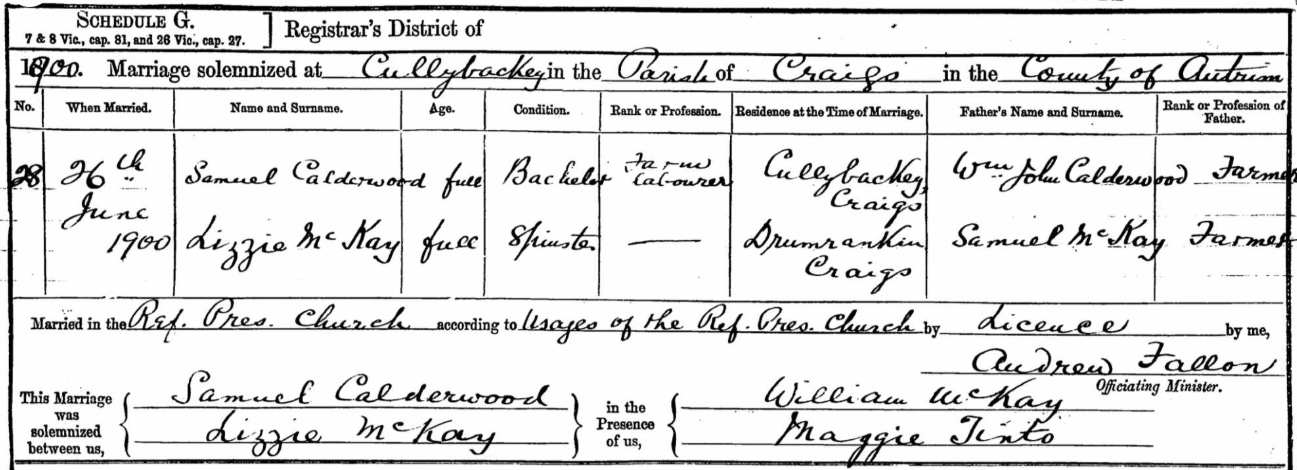 SCHEDULE G.
7 & 8 Vic., cap. 81, and 26 Vic., cap. 27.
Registrar's District of
1900. Marriage solemnized at Cullybackey in the Parish of Craigs in the County of Antrim
No. When Married. Name and Surname. Age. Condition. Rank or Profession. Residence at the Time of Marriage. Father's Name and Surname. Rank or Profession of Father.
28 26th June 1900 Samuel Calderwood full Bachelor Farm Labourer Cullybackey, Craigs Wm John Calderwood Farmer
Lizzie McKay full Spinster — Drumrankin Craigs Samuel McKay Farmer
Married in the Ref. Pres. Church according to Usages of the Ref. Pres. Church by Licence by me,
Andrew Fallon
Officiating Minister.
This Marriage was solemnized between us, Samuel Calderwood
Lizzie McKay
in the Presence of us, William McKay
Maggie Tinto